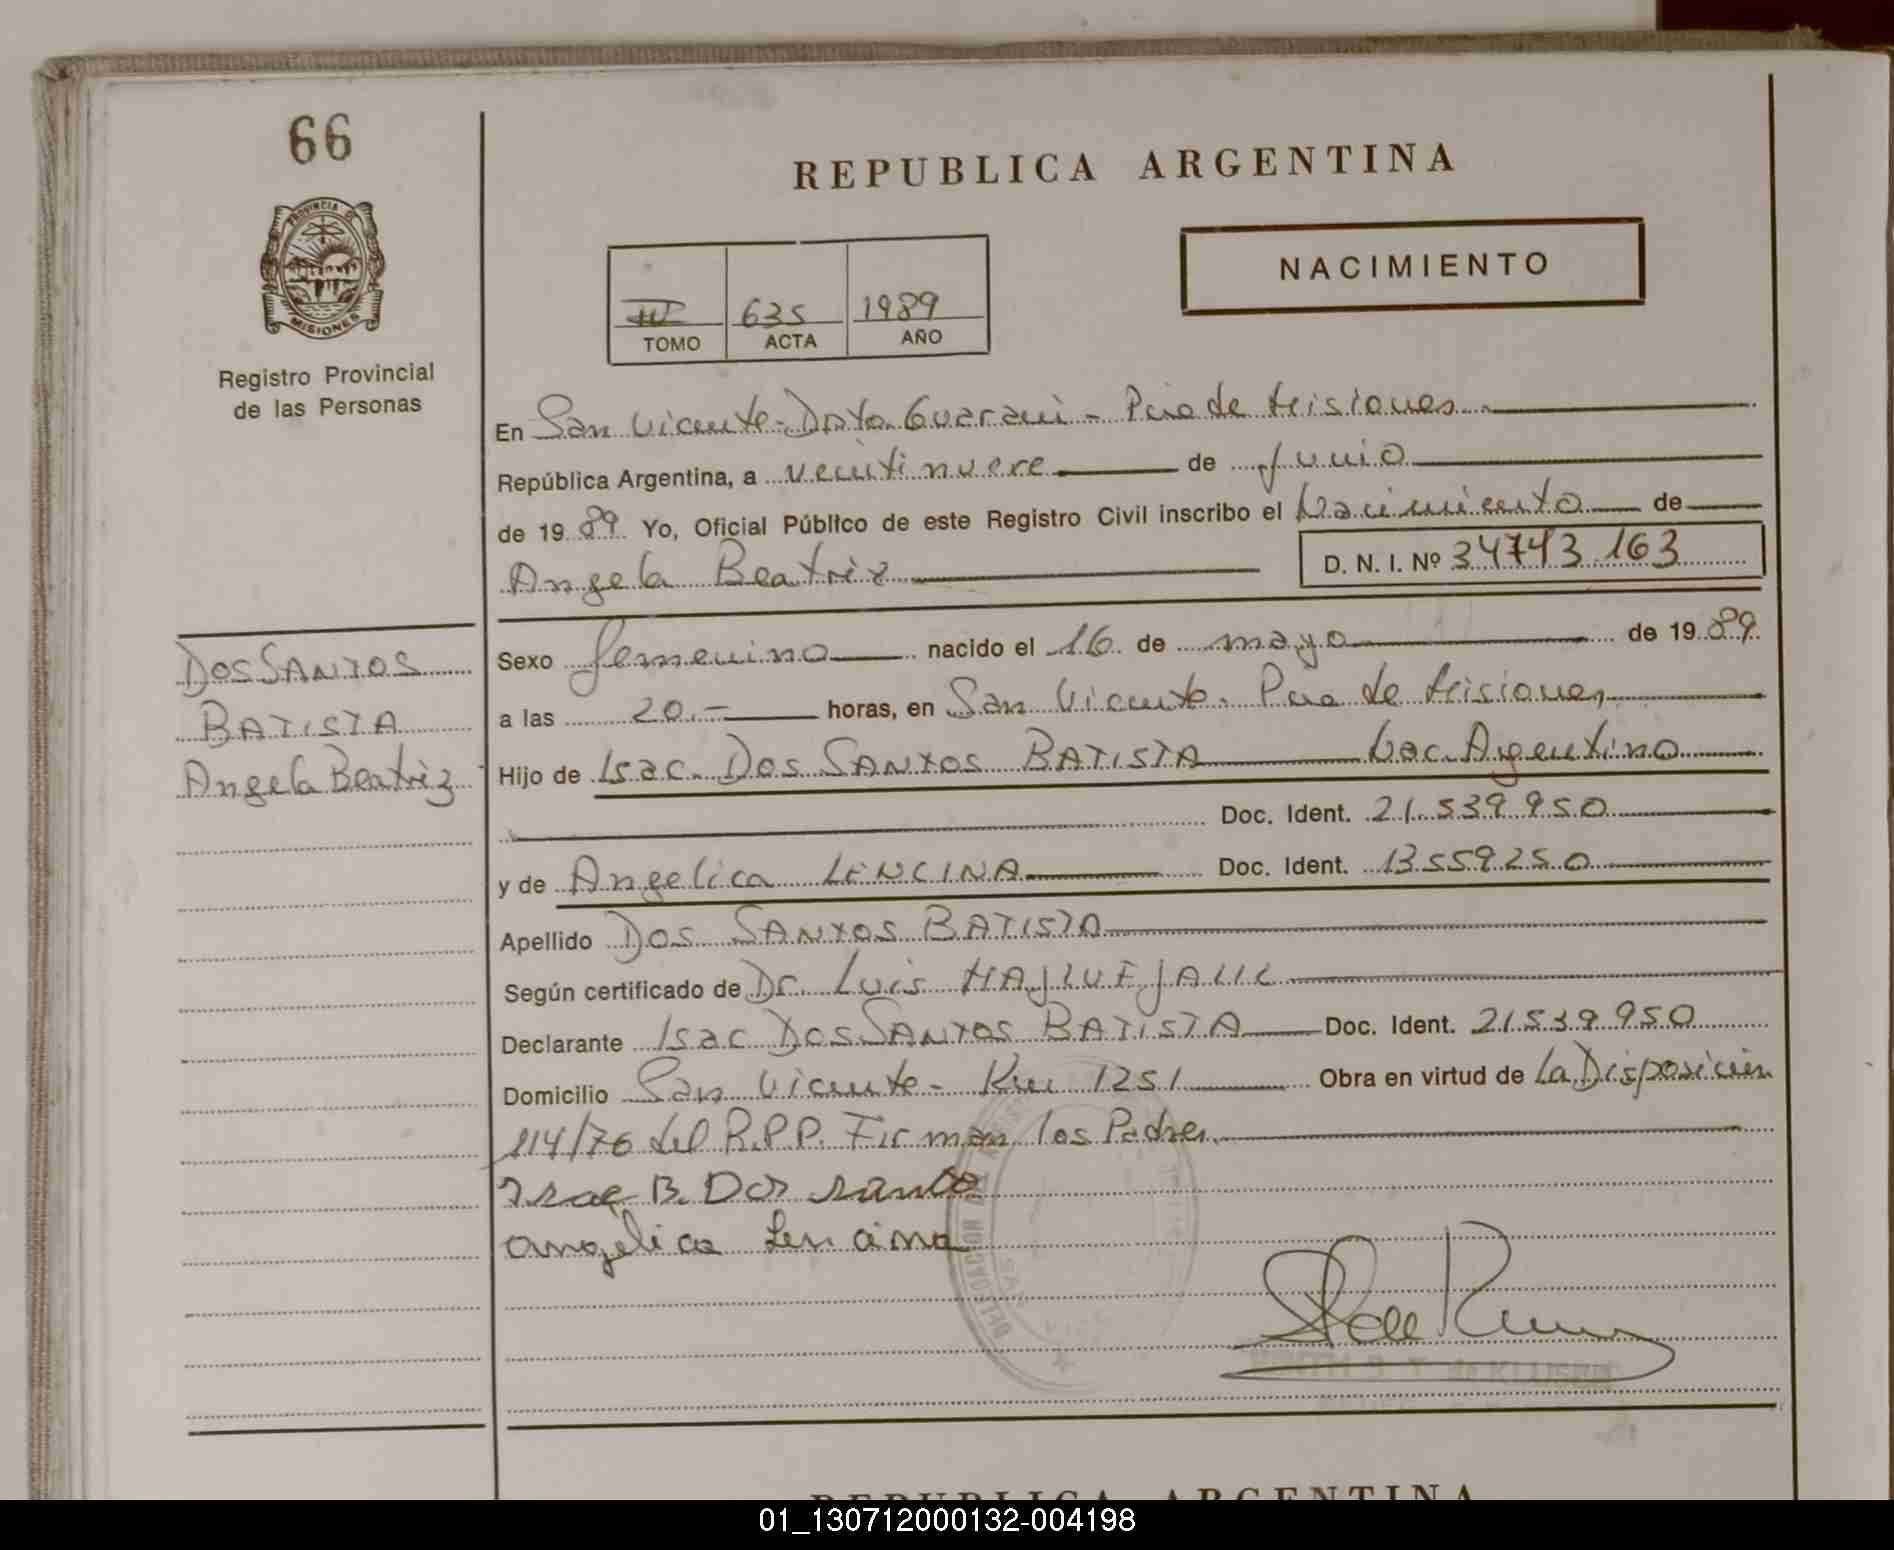 66
REPUBLICA ARGENTINA
PROVINCIA DE
MISIONES
Registro Provincial
de las Personas
NACIMIENTO
635 1989
TOMO ACTA AÑO
En San Vicente - Dpto. Guarani - Pcia de Misiones
República Argentina, a veintinueve de Junio
de 1989 Yo, Oficial Público de este Registro Civil inscribo el Nacimiento de
Angela Beatriz D. N. I. Nº 34743.163
DOS SANTOS
BATISTA
Angela Beatriz
Sexo femenino nacido el 16 de mayo de 1989
a las 20.- horas, en San Vicente - Pcia de Misiones
Hijo de Isac DOS SANTOS BATISTA Nac. Argentino
Doc. Ident. 21.539.950
y de Angelica LENCINA Doc. Ident. 13559250
Apellido DOS SANTOS BATISTA
Según certificado de Dr. Luis
Declarante Isac DOS SANTOS BATISTA Doc. Ident. 21539950
Domicilio San Vicente - Km 1251 Obra en virtud de La Disposición
114/76 del R.P.P. Firman los Padres
B. Dos santos
angelica Lencina
01_130712000132-004198